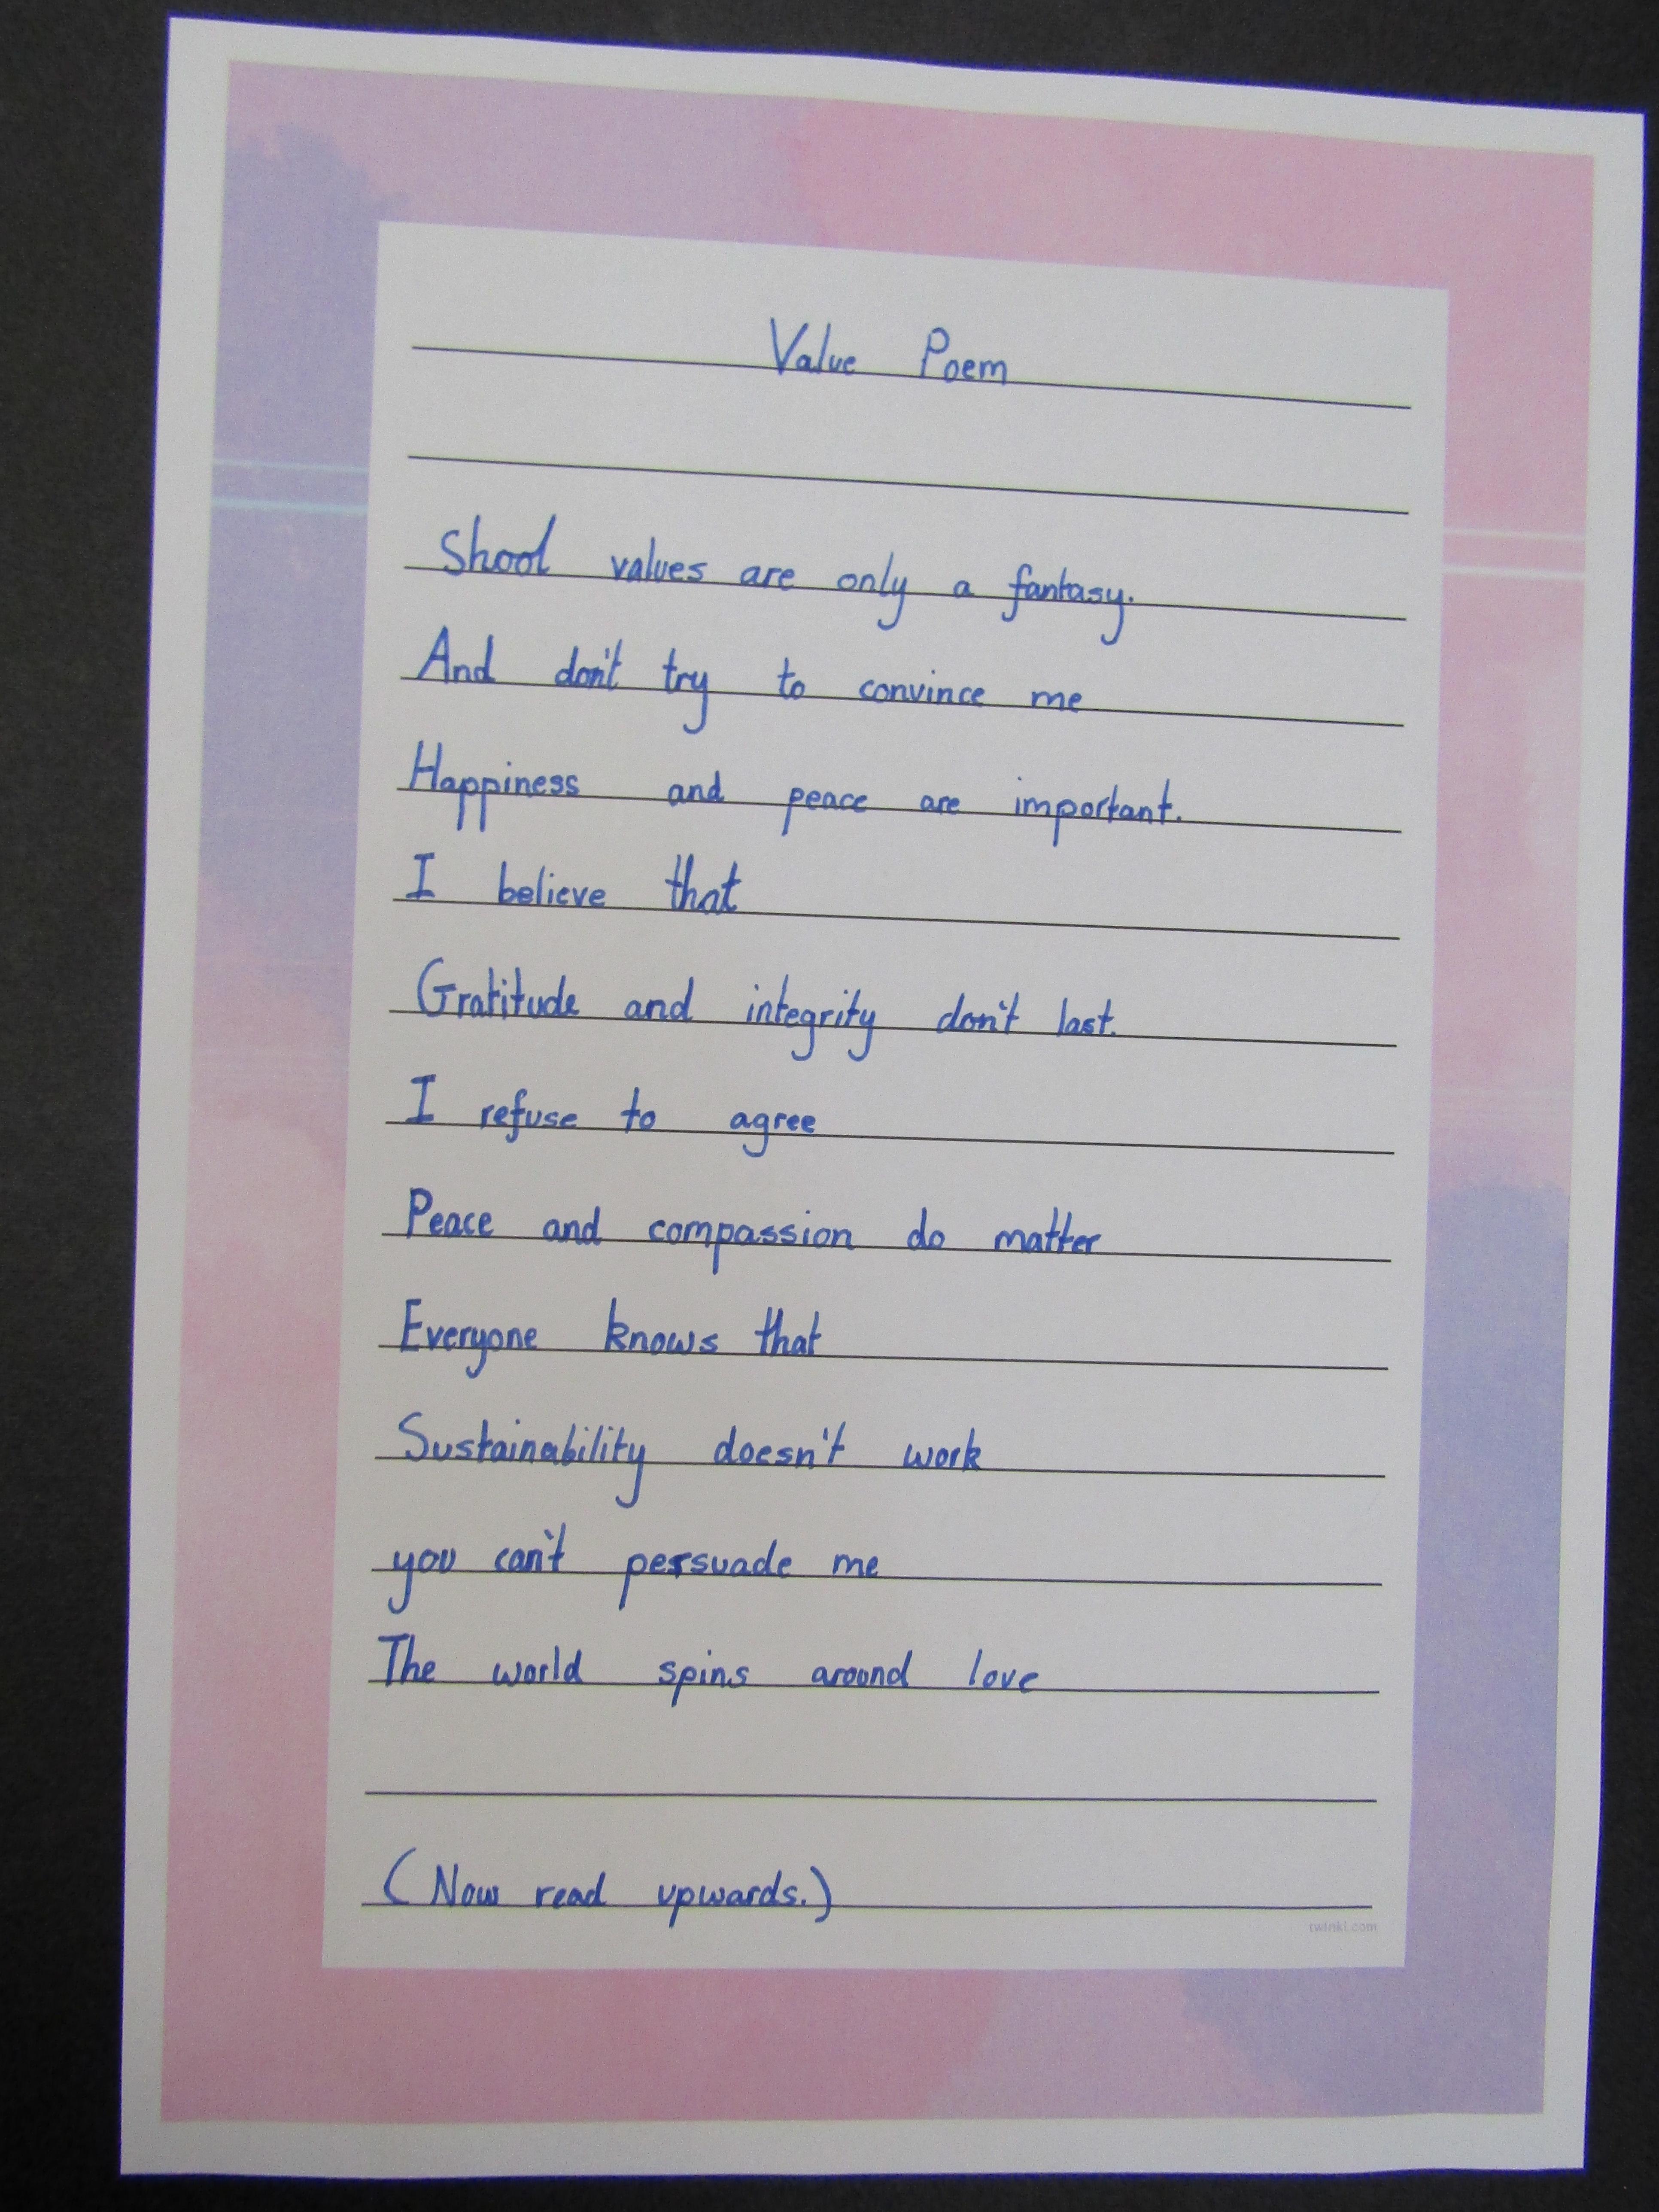 Value Poem
Shool values are only a fantasy.
And don't try to convince me
Happiness and peace are important.
I believe that
Gratitude and integrity don't last.
I refuse to agree
Peace and compassion do matter
Everyone knows that
Sustainability doesn't work
you can't persuade me
The world spins around love
(Now read upwards.)
twinkl.com